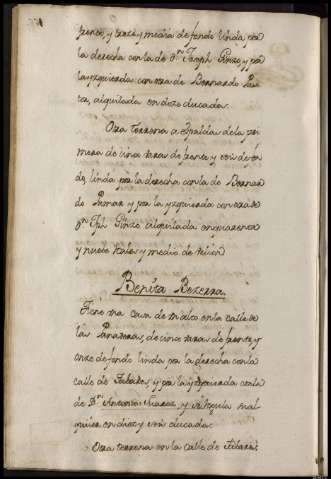 frente, y trece y media de fondo linda por
la derecha con la de Dn Joseph Pinzo, y por
la yzquierda con otra de Bernardo
alquilada en doze ducados.
Otra terrena a espaldas de la pri
mera de cinco varas de frente y seis de fon
do, linda por la derecha con la de Bernar
de Pomar y por la yzquierda con otra de
Dn Jph Pinzo alquilada en quarenta
y nueve reales y medio de vellon
Benita Bezerra
Tiene una casa de un alto en la calle de
las Panaderas, de cinco varas de frente, y
once de fondo linda por la derecha con la
calle de y por la yzquierda con la
de Dn Antonio Suarez, y se
en diez y seis ducados.
Otra terrena en la calle de